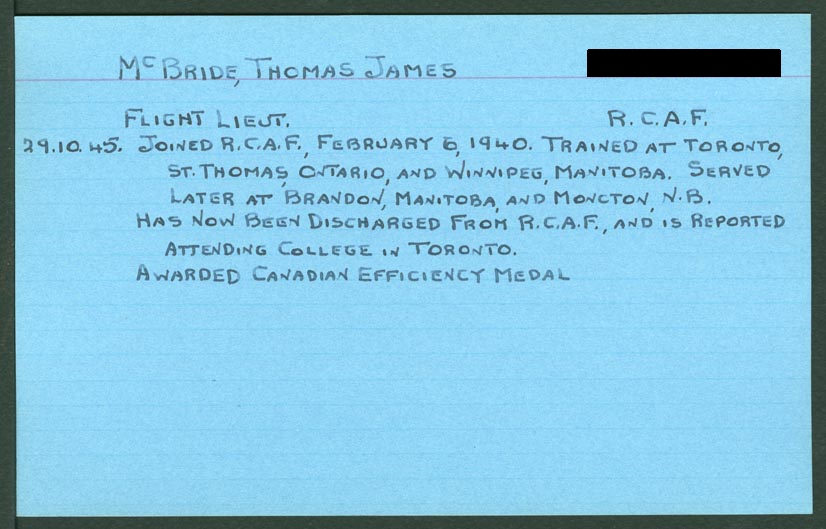 McBRIDE, THOMAS JAMES
FLIGHT LIEUT. R.C.A.F.
29.10.45. JOINED R.C.A.F., FEBRUARY 6, 1940. TRAINED AT TORONTO,
ST. THOMAS, ONTARIO, AND WINNIPEG, MANITOBA. SERVED
LATER AT BRANDON, MANITOBA, AND MONCTON, N.B.
HAS NOW BEEN DISCHARGED FROM R.C.A.F., AND IS REPORTED
ATTENDING COLLEGE IN TORONTO.
AWARDED CANADIAN EFFICIENCY MEDAL